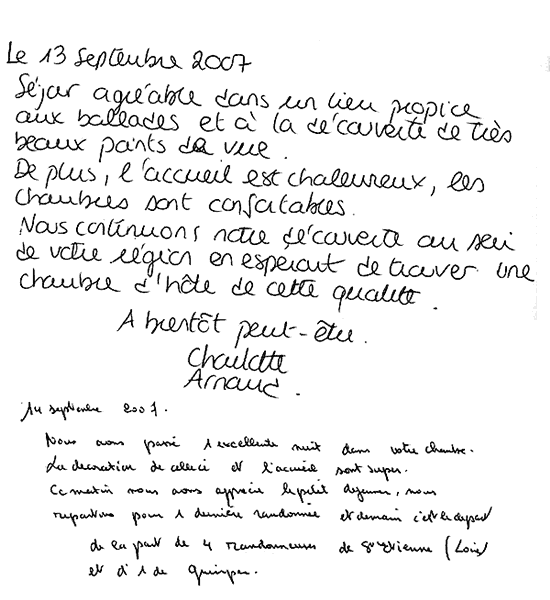 Le 13 Septembre 2007
Séjour agréable dans un lieu propice
aux ballades et à la découverte de très
beaux points de vue.
De plus, l'accueil est chaleureux, les
chambres sont confortables.
Nous continuons notre découverte au sein
de votre région en espérant de trouver une
chambre d'hôte de cette qualité.
A bientôt peut-être.
Charlotte
Arnaud.
14 septembre 2007.
Nous avons passé 1 excellente nuit dans votre chambre.
La decoration de celle ci et l'accueil sont super.
Ce matin nous avons apprécié le petit dejeuner, nous
repartons pour 1 dernière randonnée et demain c'est le depart
de la part de 4 randonneuses de St Etienne (Loire)
et d'1 de Quimper.